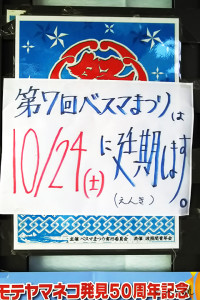 第7回ベスマまつりは
10/24(土)に延期します。
(えんき)
主催 ベスマまつり実行委員会
モテヤマネコ発見50周年記念